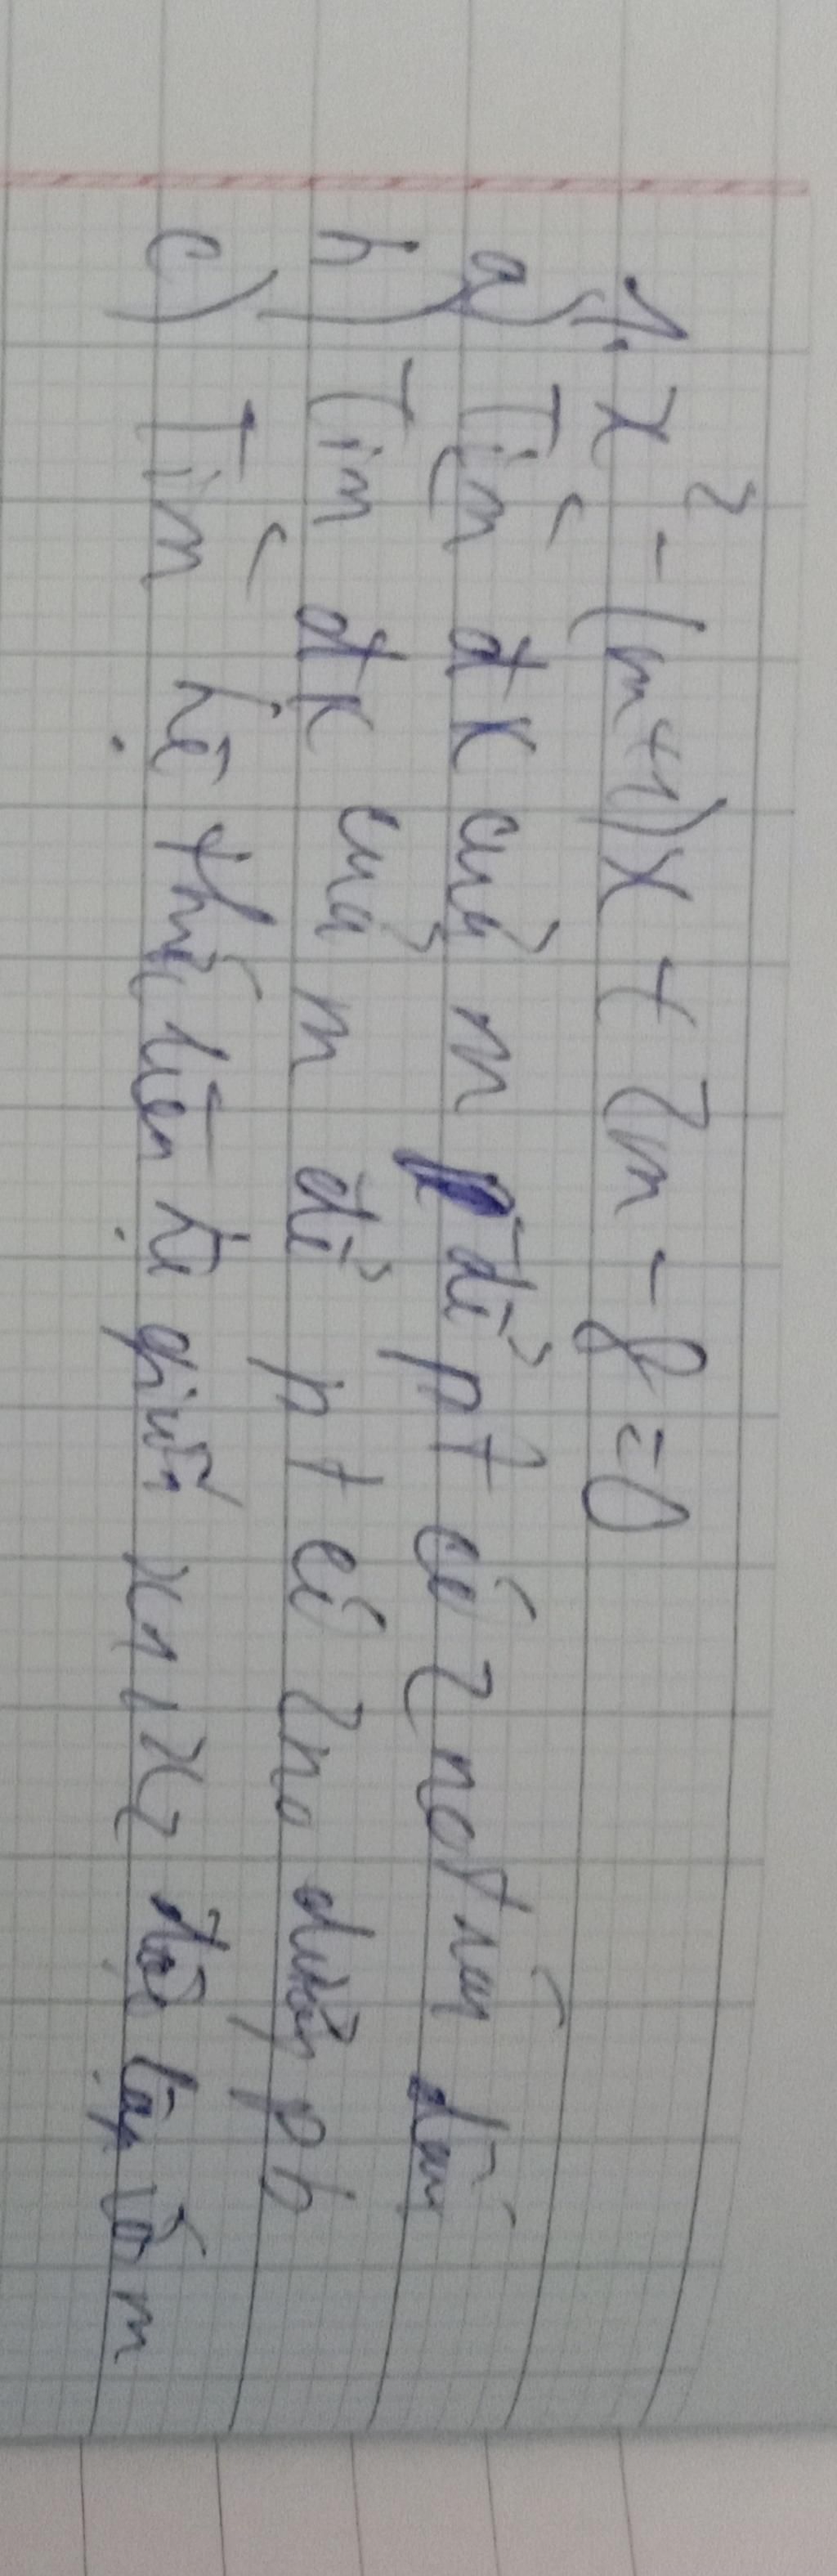 1. x² - (m+1)x + 2m - 8 = 0
a) Tìm đk của m để pt có 2 no trái dấu
b) Tìm đk của m để pt có 2 no dương pb
c) Tìm hệ thức liên hệ giữa x1, x2 độc lập với m